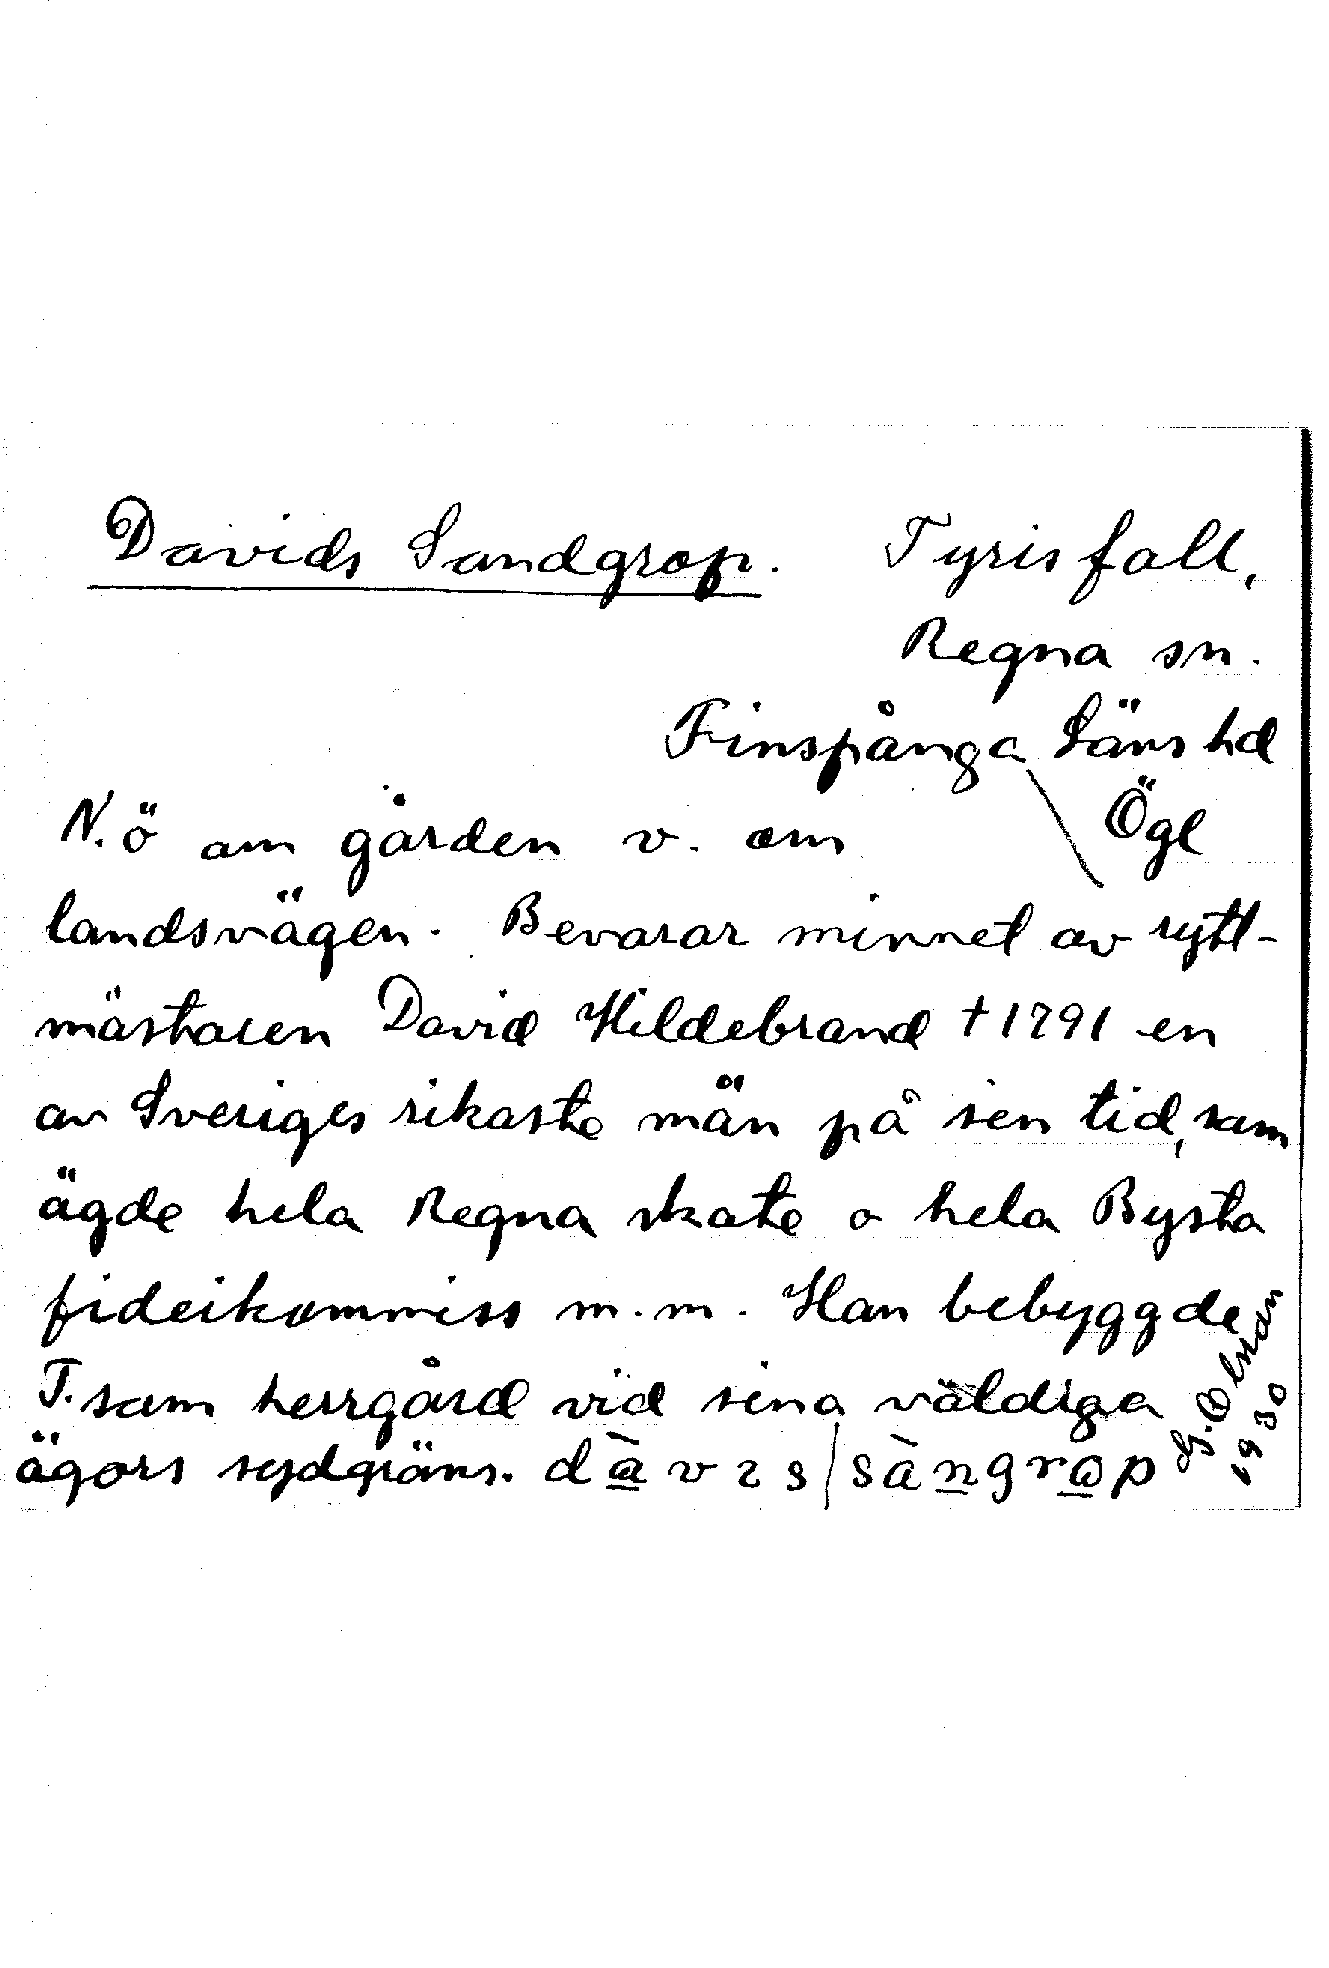 Davids Sandgrop. Tyrisfall,
Regna sn.
Finspånga Läns hd
Ögl
N. ö om gården v. om
landsvägen. Bevarar minnet av rytt-
mästaren David Hildebrand † 1791 en
av Sveriges rikaste män på sen tid, som
ägde hela Regna skate o hela Bysta
fideikommiss m.m. Han bebyggde
T. som herrgård vid sina väldiga
ägors sydgräns. dàvɩs|sàngrop
G. Olsson
1930